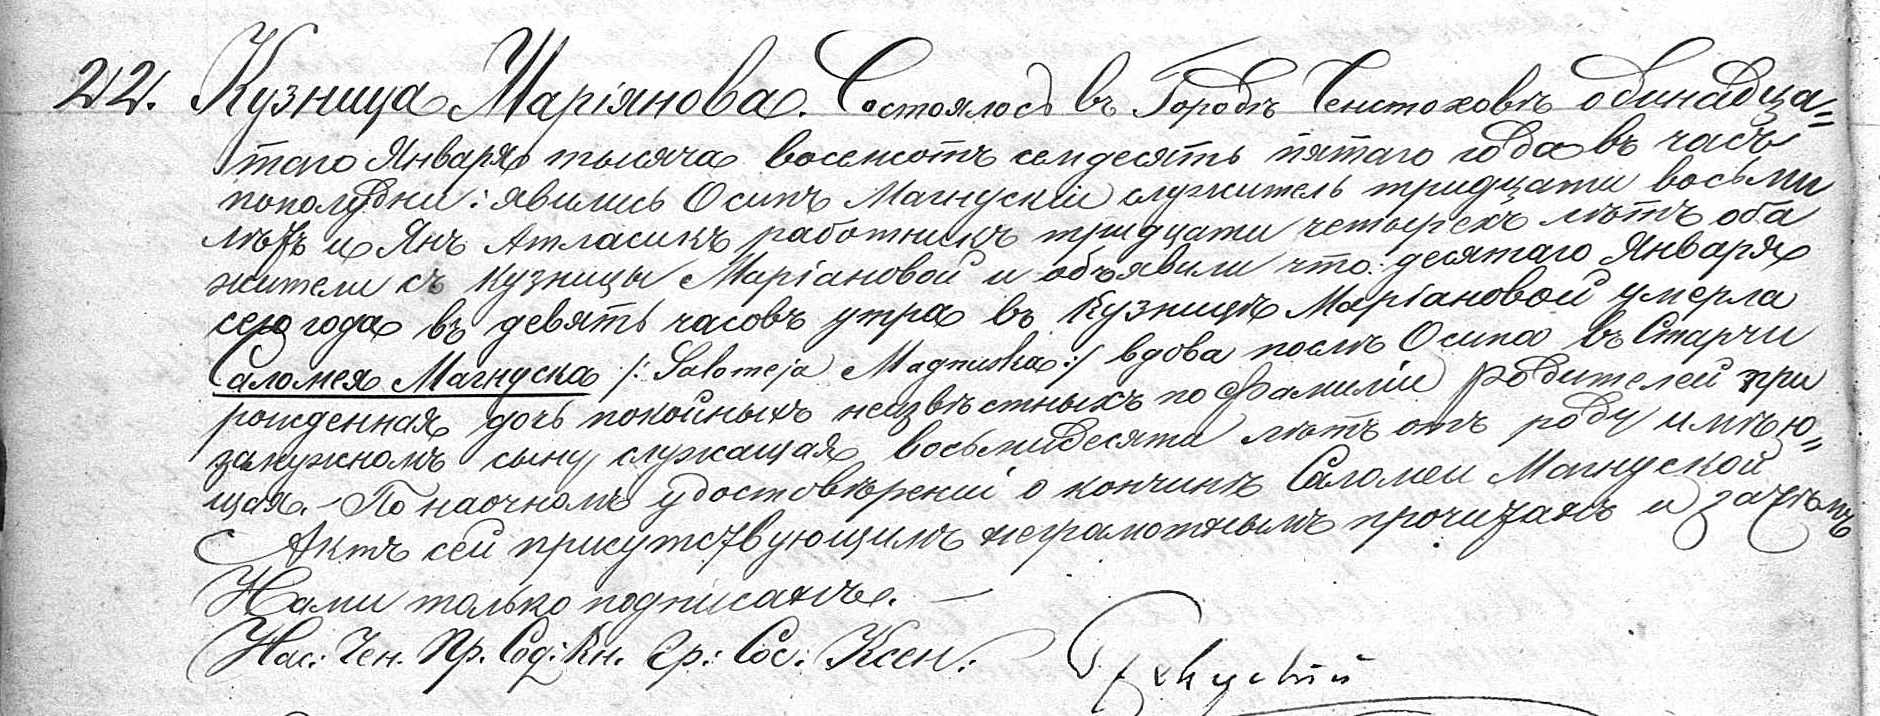 22. Кузница Маріянова. Состоялось въ Городѣ Ченстоховѣ одинадца=
таго Января тысяча восемсотъ семдесятъ пятаго года въ часъ
пополудни: явились Осипъ Магнускій служитель тридцати восьми
лѣтъ и Янъ Атласикъ работникъ тридцати четырехъ лѣтъ оба
жители съ Кузницы Маріановой и объявили что: десятаго Января
сего года въ девять часовъ утра въ Кузницѣ Маріановой умерла
Саломея Магнуска /: Salomeja Magnuska :/ вдова послѣ Осипа въ Старчи
рожденная дочь покойныхъ неизвѣстныхъ по Фамиліи родителей при
замужномъ сыну служащая восьмидесяти лѣтъ отъ роду имѣю=
щая. – По наочномъ удостовѣреніи о кончинѣ Саломеи Магнуской
Актъ сей присутствующимъ неграмотнымъ прочитанъ и затѣмъ
Нами только подписанъ. —
Нас: Чен. Пр. Сод: Кн. Гр: Сос: Ксен: